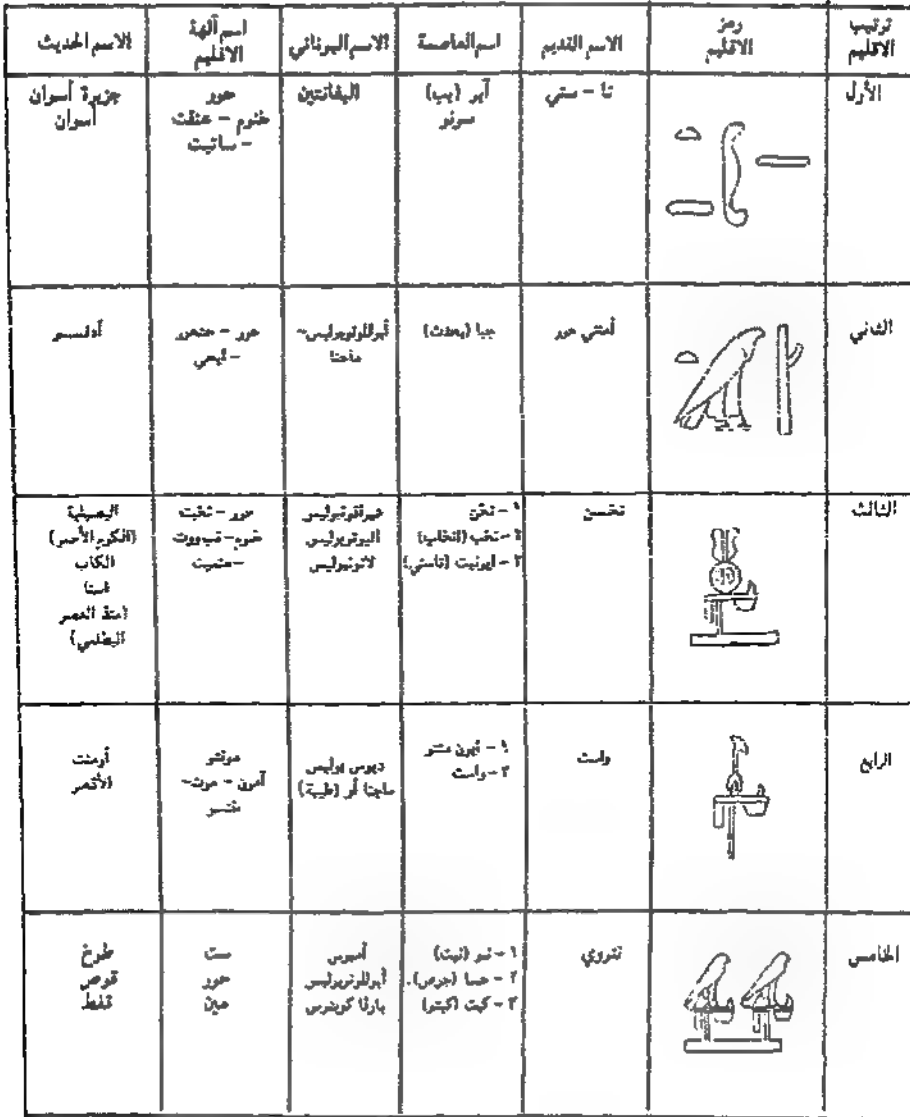 ترتيب الاقليم
رمز الاقليم
الاسم القديم
اسم العاصمة
الاسم اليوناني
اسم آلهة الاقليم
الاسم الحديث
الأول
تا - ستي
آبو (يب)
سونو
اليفانتين
حور
خنوم - عنقت
- ساتيت
جزيرة أسوان
أسوان
الثاني
أمنتي حور
جبا (بحدت)
أبوللونوبوليس-
ماجنا
حور - حتحور
- ايحي
أدفسو
الثالث
نخسن
١ - نخن
٢ - نخب (انخاب)
٣ - ايونيت (تاسني)
هيراقونبوليس
اليوتوبوليس
لاتونبوليس
حور - نخبت
خنوم - نبووت
البصيلية
(الكوم الأحمر)
الكاب
اسنا
(منذ العصر
البطلمي)
الرابع
واست
١ - ايون منتو
٢ - واست
ديوس بوليس
ماجنا أو (طيبة)
مونتو
آمون - موت -
خنسو
أرمنت
الأقصر
الخامس
نتروي
١ - نبو (نبت)
٢ - جسا (جوص).
٣ - كبت (كبتو)
أمبوس
أبوللونوبوليس
بارفا كوبتوس
ست
حور
مين
طوخ
قوص
قفط